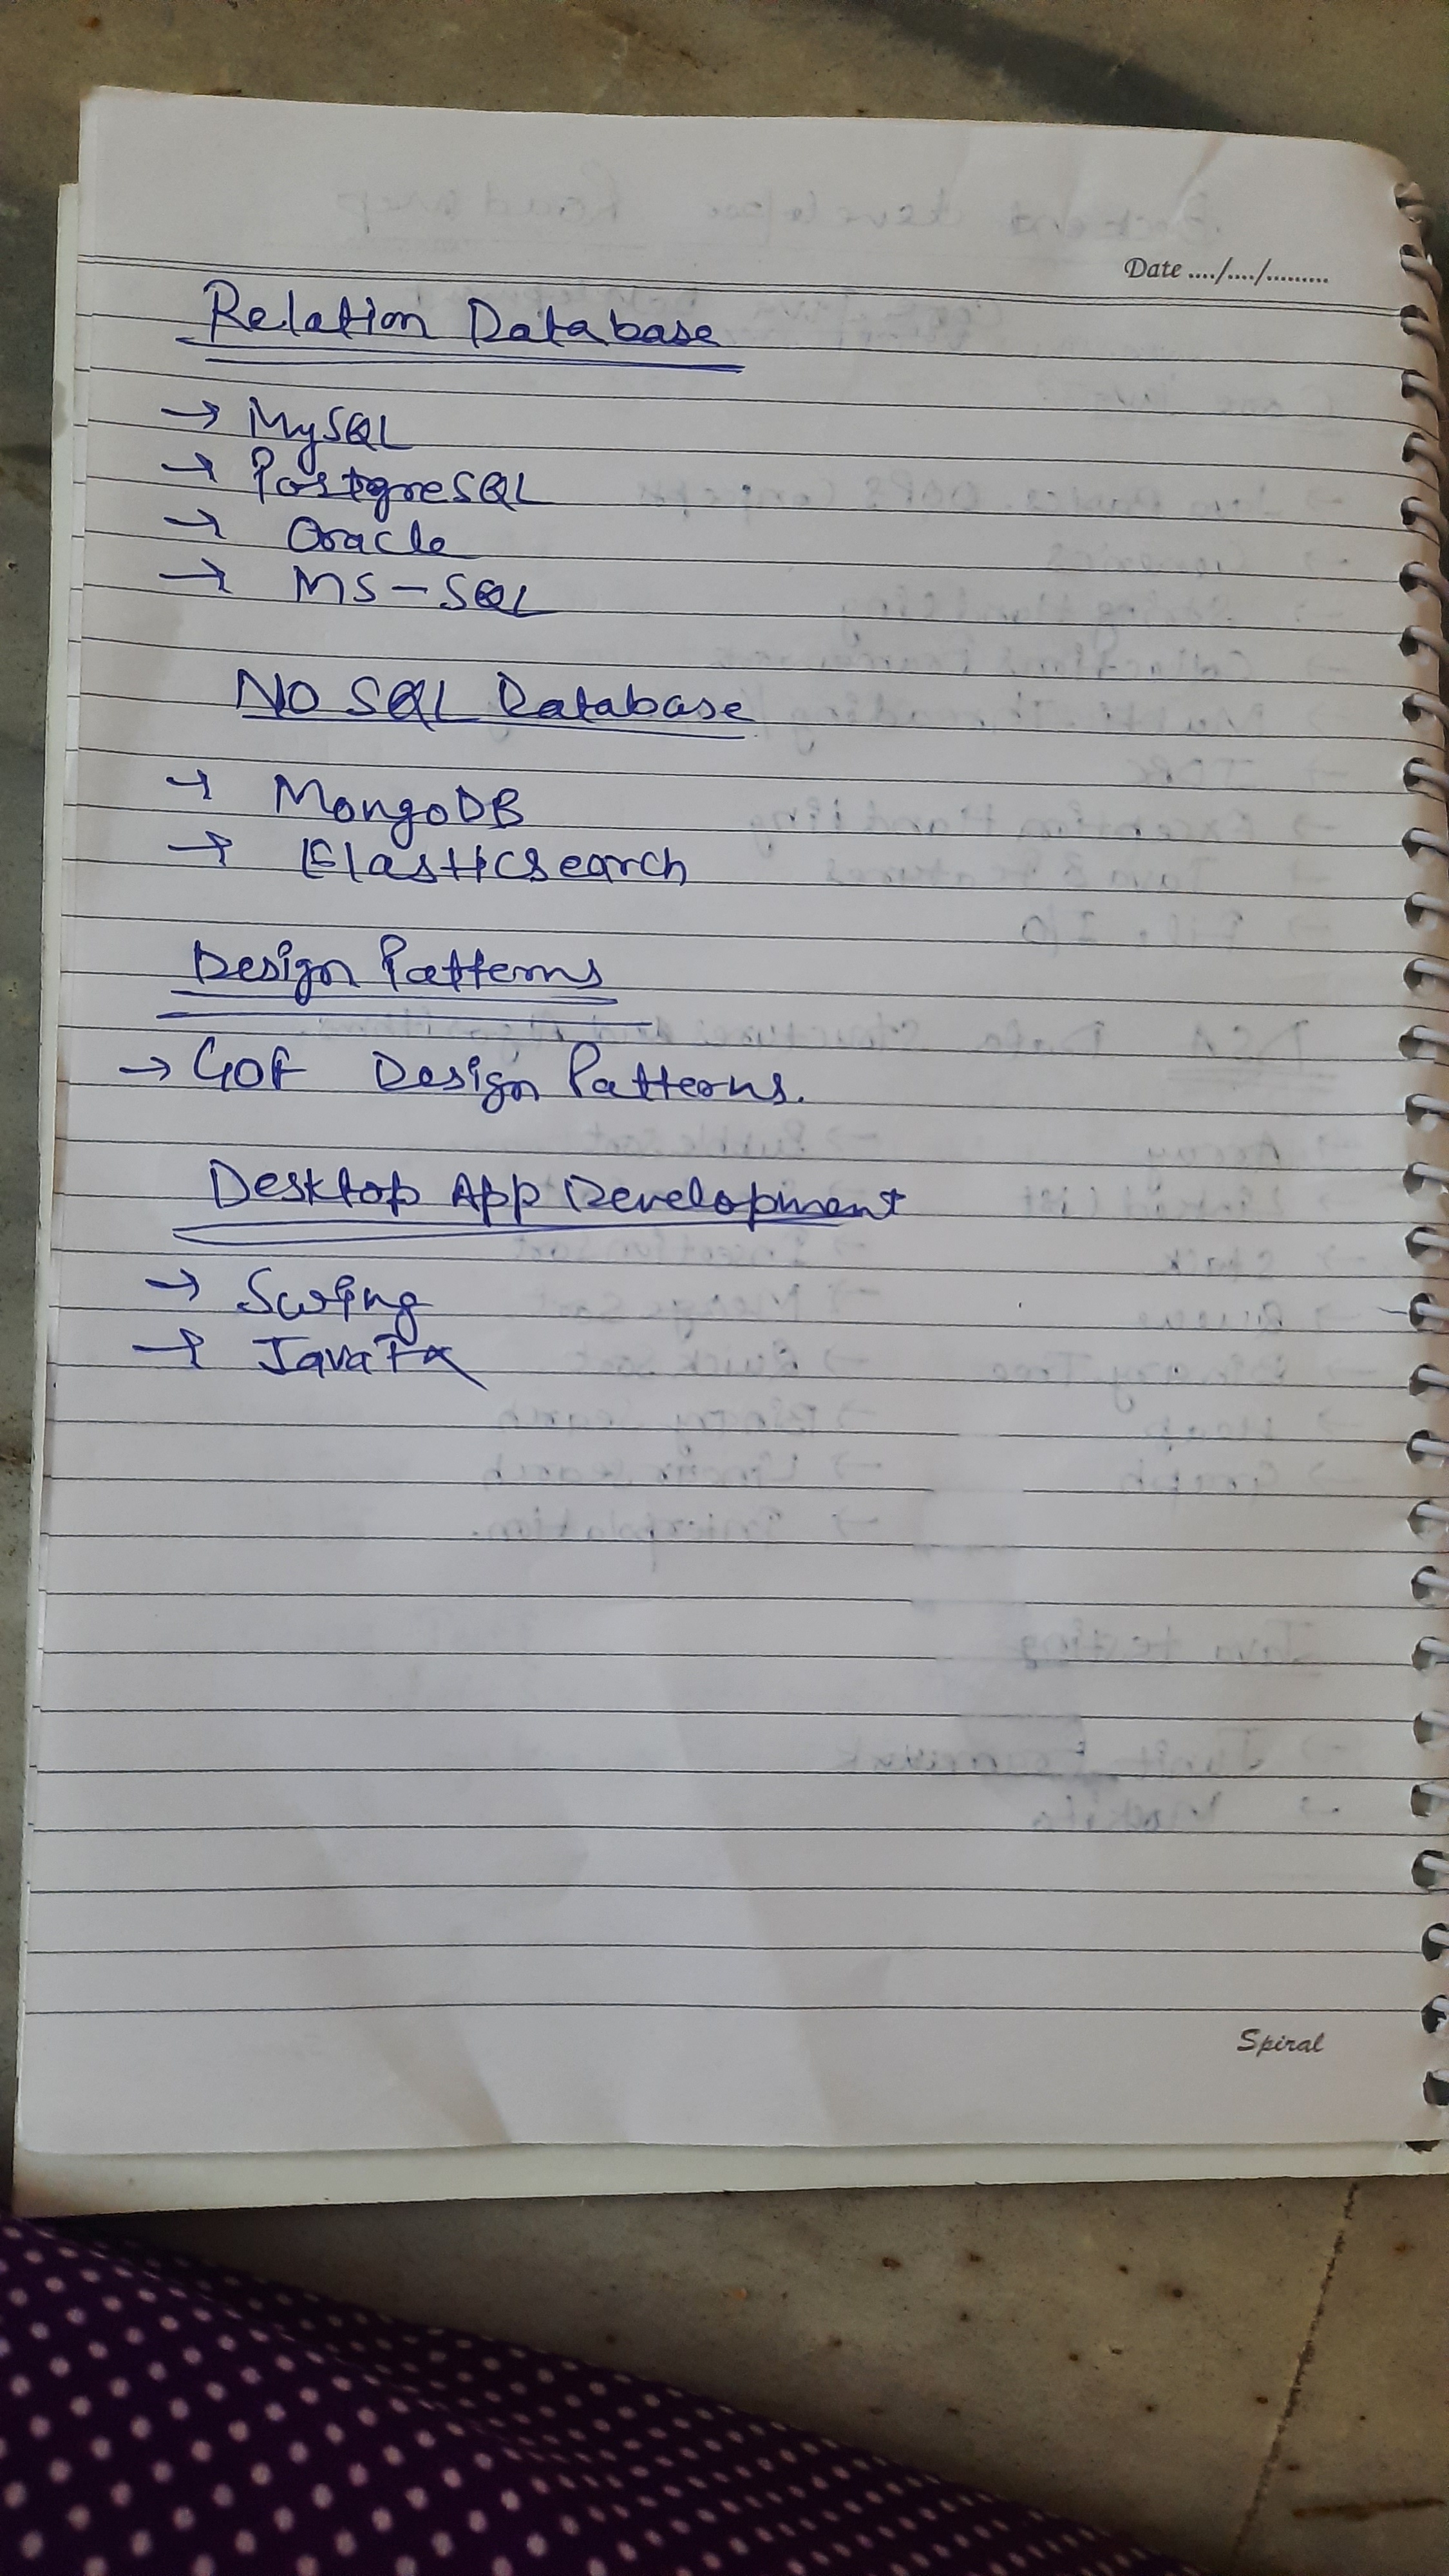 Date ..../..../.........
Relation Database
→ MySQL
→ PostgreSQL
→ Oracle
→ MS-SQL
NO SQL Database
→ MongoDB
→ Elasticsearch
Design Patterns
→ GOF Design Patterns.
Desktop App Development
→ Swing
→ JavaFx
Spiral